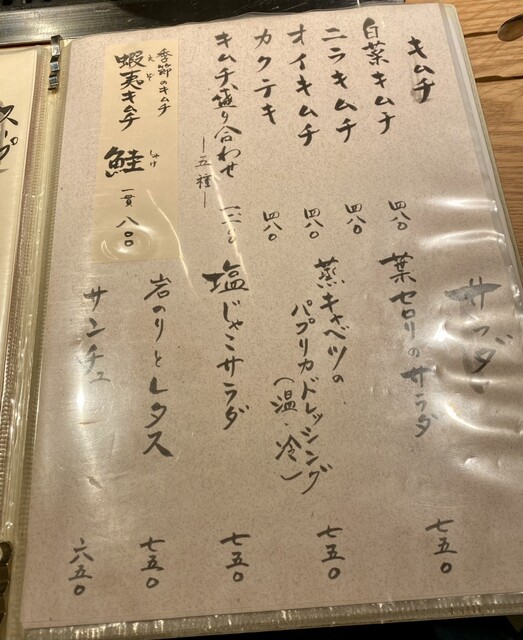 キムチ
白菜キムチ 四八〇
ニラキムチ 四八〇
オイキムチ 四八〇
カクテキ 四八〇
キムチ盛り合わせ
―五種―
季節のキムチ
えぞ
蝦夷キムチ
しゃけ
鮭
一貫 八〇〇
サラダ
葉セロリのサラダ 七五〇
蒸キャベツの
パプリカドレッシング
(温・冷) 七五〇
塩じゃこサラダ 七五〇
岩のりとレタス 七五〇
サンチュ 六五〇
スープ